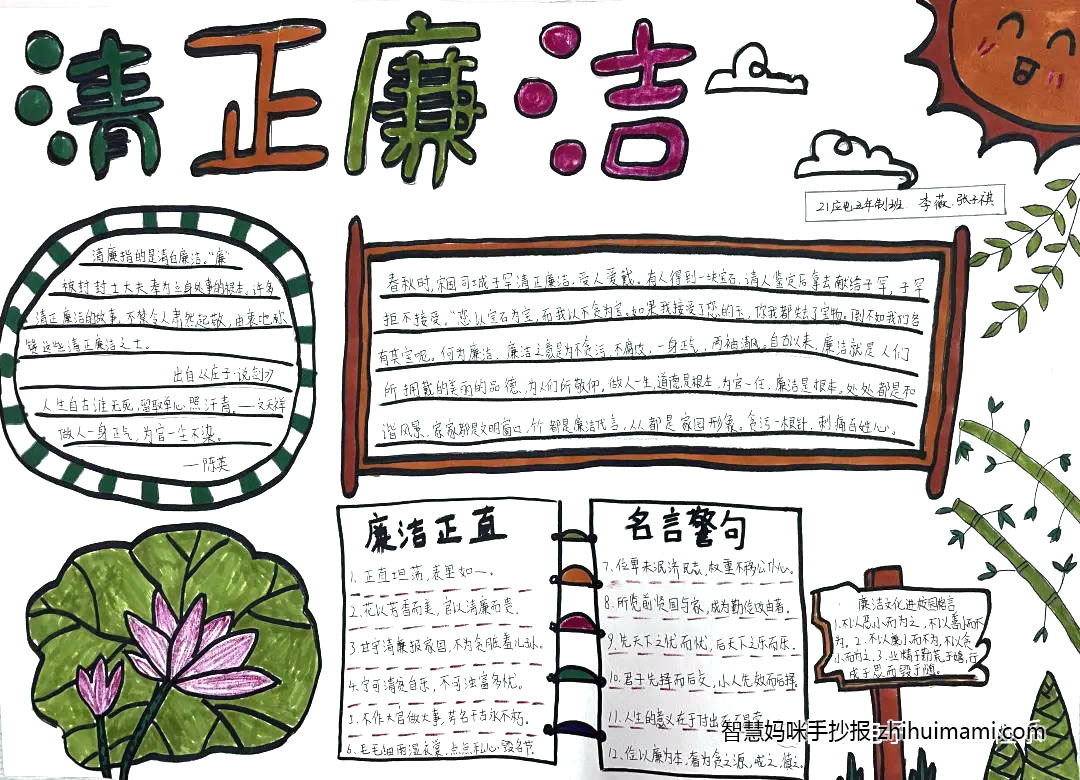 清正廉洁
21应电五年制班 李薇 张子祺
清廉指的是清白廉洁。"廉"
根封封士大夫奉为立身从事的根本。许多
清正廉洁的故事,不禁令人肃然起敬,由衷地
赞这些清正廉洁之士。
出自《庄子·说剑》
人生自古谁无死,留取丹心照汗青。——文天祥
做人一身正气,为官一尘不染。
——陈英
春秋时,宋国司城子罕清正廉洁,受人爱戴。有人得到一块宝石,请人鉴定后拿去献给子罕,子罕
拒不接受,"您以宝石为宝,而我以不贪为宝。如果我接受了您的玉,你我都失去了宝物。倒不如我们各
有其宝呢。何为廉洁,廉洁之意是为不贪污,不腐败,一身正气,两袖清风。自古以来,廉洁就是人们
所拥戴的美丽的品德,为人们所敬仰,做人一生,道德是根本,为官一任,廉洁是根本,处处都是和
谐风景,家家都是文明窗口,竹都是廉洁代言,人人都是家国形象。贪污一根针,刺痛百姓心。
廉洁正直
1. 正直坦荡,表里如一。
2. 花以芳香而美,官以清廉而贵。
3. 甘守清廉报家国,不为贪赃羞儿孙。
4. 宁可清贫自乐,不可浊富多忧。
5. 不作大官做大事,芳名千古永不朽。
6. 毛毛细雨湿衣裳,点点私心毁名节。
名言警句
7. 位卑未泯济民志,权重不移公仆心。
8. 所览前贤国与家,成为勤俭败由奢。
9. 先天下之忧而忧,后天下之乐而乐。
10. 君子先择而后交,小人先交而后择
11. 人生的意义在于付出而不是
12. 位以廉为本,奢为贪之源,
廉洁文化进校园
1. 不以恶小而为之,不以善小而不
为。2. 不以廉小而不为,不以贪
小而为之。3. 业精于勤荒于嬉,行
成于思而毁于随。
智慧妈咪手抄报:zhihuimami.com